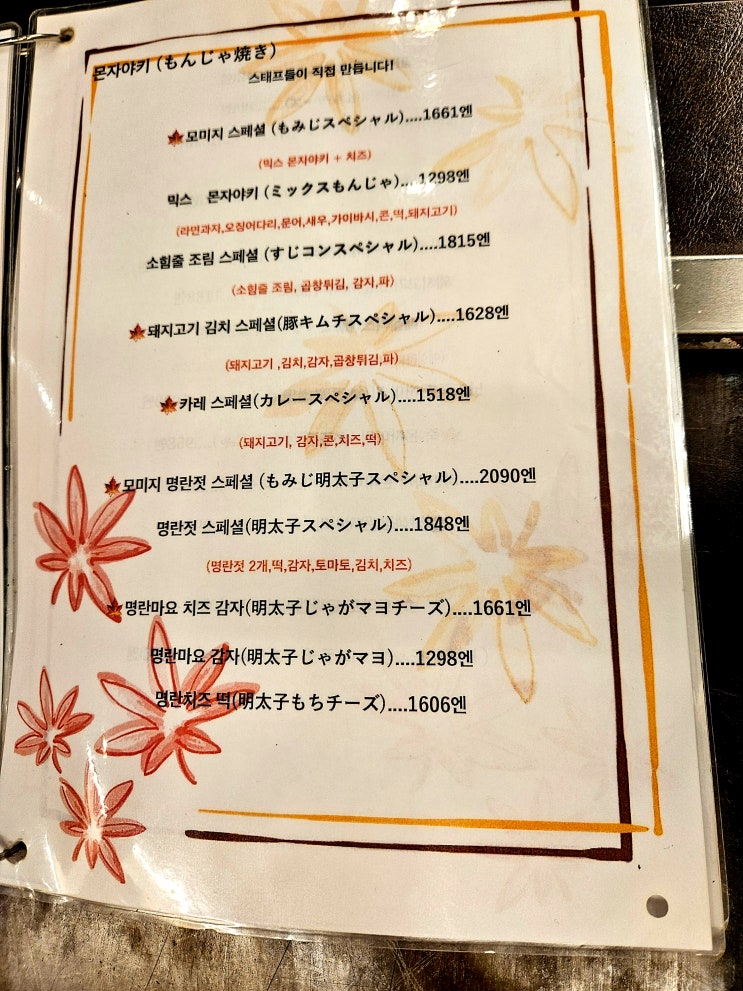 몬자야키 (もんじゃ焼き)
스태프들이 직접 만듭니다!
모미지 스페셜 (もみじスペシャル)....1661엔
(믹스 몬자야키 + 치즈)
믹스 몬자야키 (ミックスもんじゃ)....1298엔
(라면과자,오징어다리,문어,새우,가이바시,콘,떡,돼지고기)
소힘줄 조림 스페셜 (すじコンスペシャル)....1815엔
(소힘줄 조림, 곱창튀김, 감자,파)
돼지고기 김치 스페셜(豚キムチスペシャル)....1628엔
(돼지고기 ,김치,감자,곱창튀김,파)
카레 스페셜(カレースペシャル)....1518엔
(돼지고기, 감자,콘,치즈,떡)
모미지 명란젓 스페셜 (もみじ明太子スペシャル)....2090엔
명란젓 스페셜(明太子スペシャル)....1848엔
(명란젓 2개,떡,감자,토마토,김치,치즈)
명란마요 치즈 감자(明太子じゃがマヨチーズ)....1661엔
명란마요 감자(明太子じゃがマヨ)....1298엔
명란치즈 떡(明太子もちチーズ)....1606엔